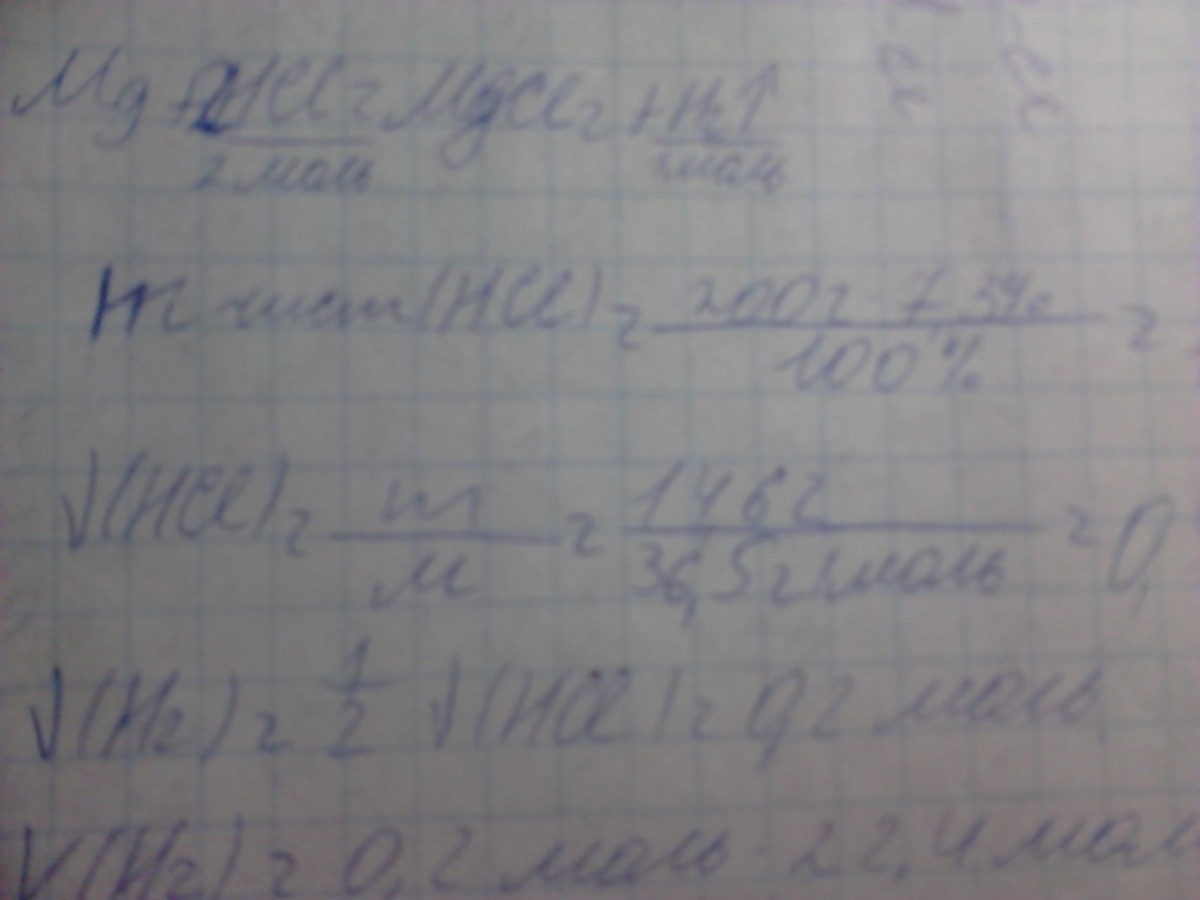 Mg + 2HCl = MgCl₂ + H₂↑
2 моль 1 моль
m чист(HCl) = 200г · 7,3% / 100% =
ν(HCl) = m / M = 14,6г / 36,5г/моль = 0,
ν(H₂) = 1/2 ν(HCl) = 0,2 моль
V(H₂) = 0,2 моль · 22,4 мол